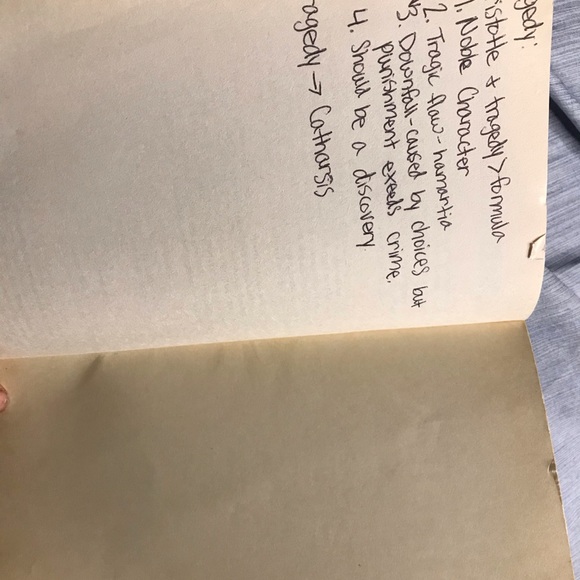 gedy:
istotle + tragedy > formula
1. Noble Character
2. Tragic flaw - hamartia
3. Downfall - caused by choices but
punishment exeeds crime.
4. Should be a discovery.
ragedy → Catharsis